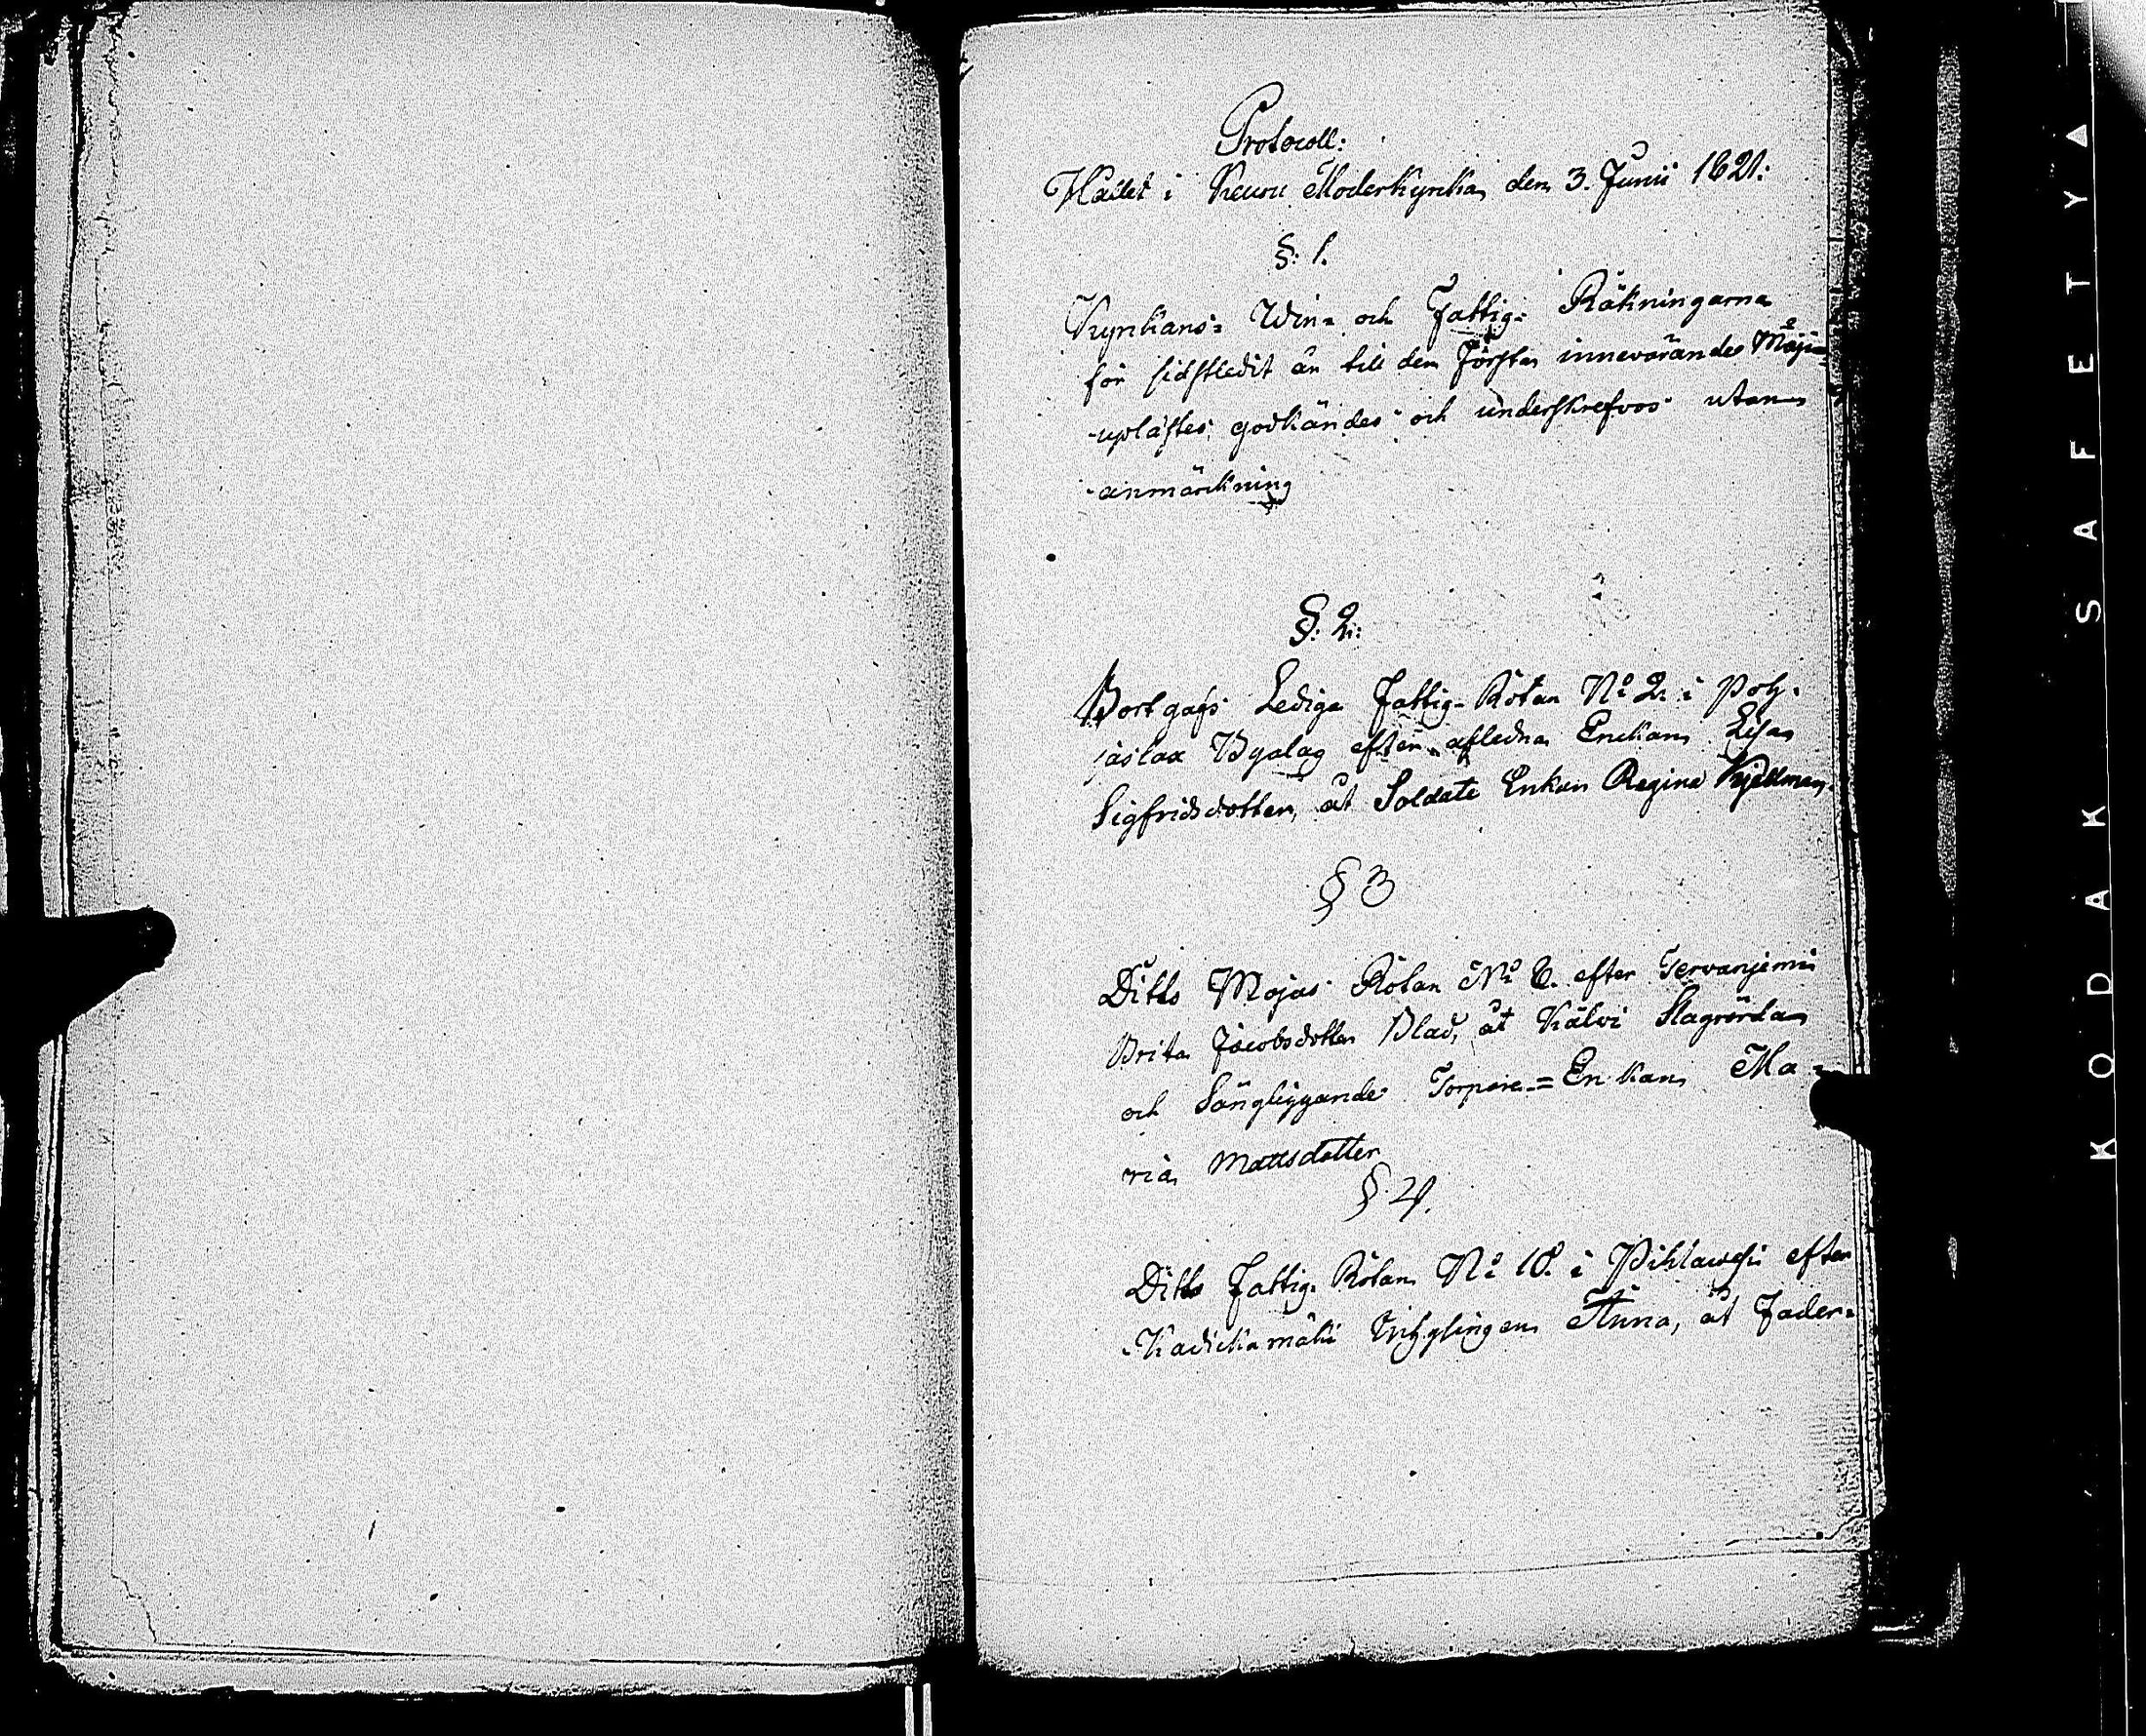 Protocoll:
Hållet i Keuru Moderkyrka den 3. Junii 1821:
§: 1.
Kyrkans= Win= och Fattig= Räkningarna
för sidstledit år till den första innevarande Maji
upläßtes, godkändes och underskrefvos utan
anmärkning
§: 2:
Bortgafs Lediga Fattig-Rotan No 2. i Poh-
jaslax Byalag efter afledna Enkan Lisa
Sigfridsdotter, åt Soldate Enkan Regina Kjellman.
§ 3
Ditto Rotan No 6. efter Tervaniemi
Brita Jacobsdotter Blad, åt Kälvi Slagrörda
och Sängliggande Torpare=Enkan Ma=
ria Mattsdotter
§ 4.
Ditto Fattig-Rotan No 10. i Pihlawesi efter
Kadickamäki Anna, åt Fader=
KODAK SAFETY A